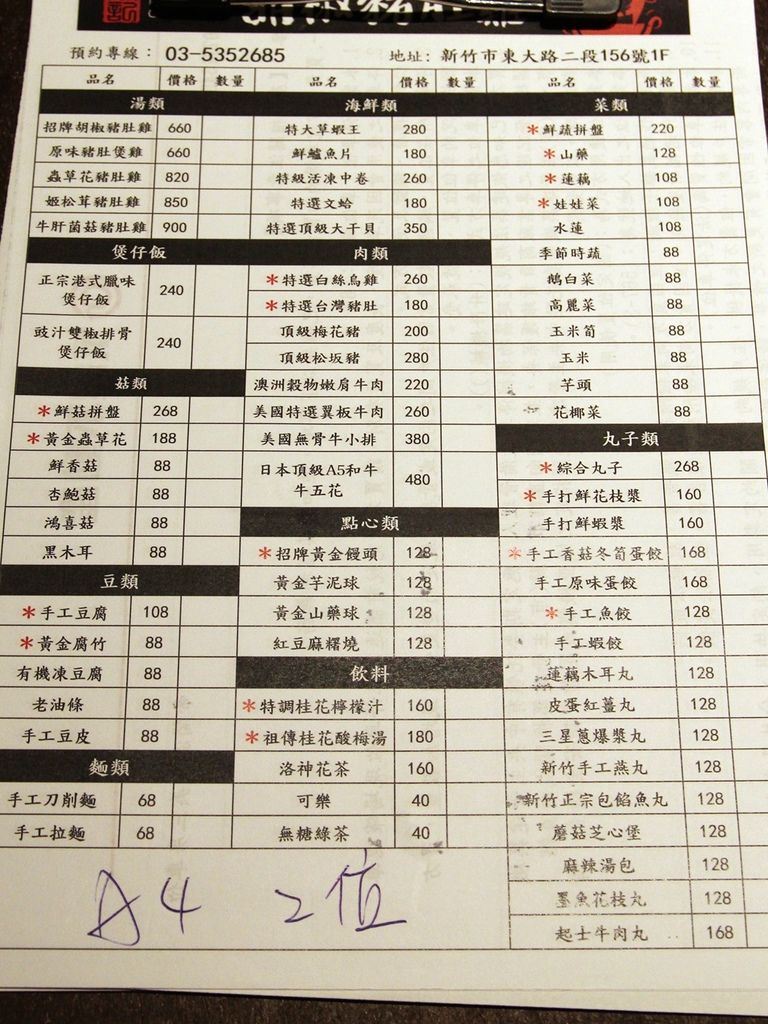 預約專線： 03-5352685 地址: 新竹市東大路二段156號1F
品名 價格 數量 品名 價格 數量 品名 價格 數量
湯類
招牌胡椒豬肚雞 660
原味豬肚煲雞 660
蟲草花豬肚雞 820
姬松茸豬肚雞 850
牛肝菌菇豬肚雞 900
煲仔飯
正宗港式臘味
煲仔飯 240
豉汁雙椒排骨
煲仔飯 240
菇類
*鮮菇拼盤 268
*黃金蟲草花 188
鮮香菇 88
杏鮑菇 88
鴻喜菇 88
黑木耳 88
豆類
*手工豆腐 108
*黃金腐竹 88
有機凍豆腐 88
老油條 88
手工豆皮 88
麵類
手工刀削麵 68
手工拉麵 68
海鮮類
特大草蝦王 280
鮮鱸魚片 180
特級活凍中卷 260
特選文蛤 180
特選頂級大干貝 350
肉類
*特選白絲烏雞 260
*特選台灣豬肚 180
頂級梅花豬 200
頂級松坂豬 280
澳洲穀物嫩肩牛肉 220
美國特選翼板牛肉 260
美國無骨牛小排 380
日本頂級A5和牛
牛五花 480
點心類
*招牌黃金饅頭 128
黃金芋泥球 128
黃金山藥球 128
紅豆麻糬燒 128
飲料
*特調桂花檸檬汁 160
*祖傳桂花酸梅湯 180
洛神花茶 160
可樂 40
無糖綠茶 40
菜類
*鮮蔬拼盤 220
*山藥 128
*蓮藕 108
*娃娃菜 108
水蓮 108
季節時蔬 88
鵝白菜 88
高麗菜 88
玉米筍 88
玉米 88
芋頭 88
花椰菜 88
丸子類
*綜合丸子 268
*手打鮮花枝漿 160
手打鮮蝦漿 160
*手工香菇冬筍蛋餃 168
手工原味蛋餃 168
*手工魚餃 128
手工蝦餃 128
蓮藕木耳丸 128
皮蛋紅薑丸 128
三星蔥爆漿丸 128
新竹手工燕丸 128
新竹正宗包餡魚丸 128
蘑菇芝心堡 128
麻辣湯包 128
墨魚花枝丸 128
起士牛肉丸 168
A4 2位